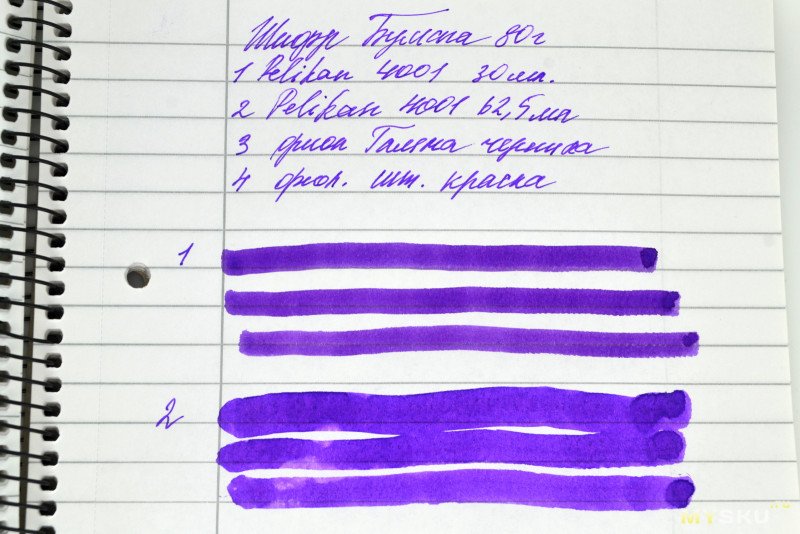 Шифр Бумага 80г
1 Pelikan 4001 30мл.
2 Pelikan 4001 62,5мл
3 фиол Галяна черника
4 фиол. шт. краска
1
2
MYSKU.ru